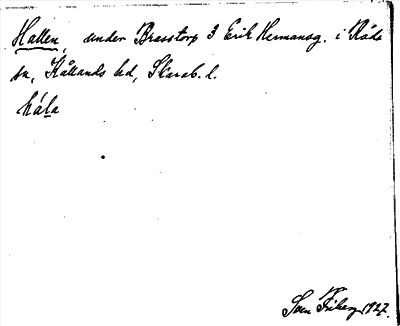 Hallen, under Brasstorp 3 Erik Hermansg. i Råda
sn, Kållands hd, Skarab. l.
hála
Sven Friberg 1927.